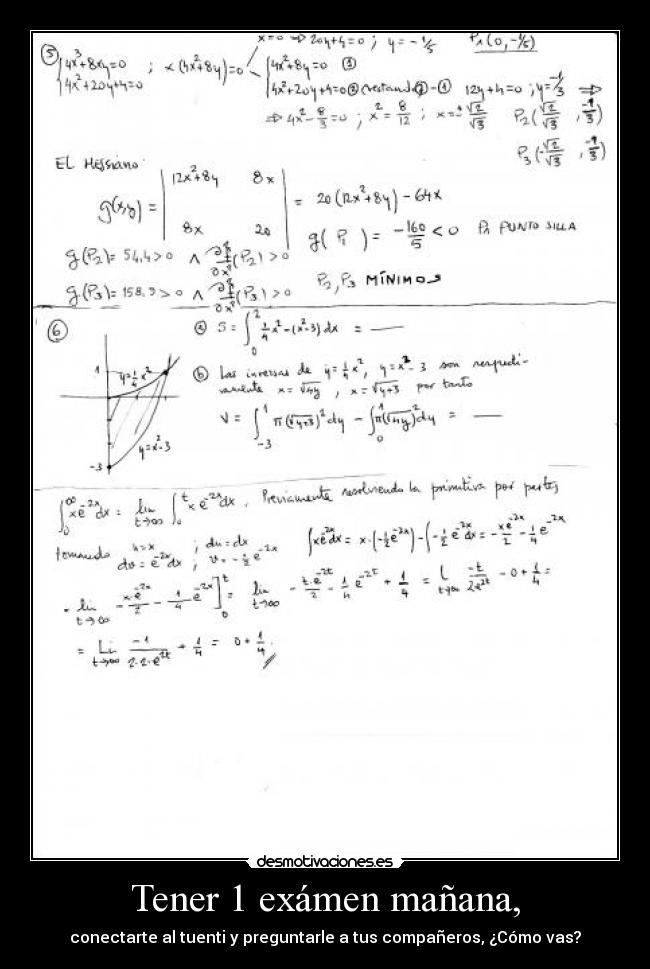 x=0 ⇒ 20y+4=0 ; y=-1/5 P₁(0,-1/5)
⑤ {4x³+8xy=0 ; x(4x²+8y)=0 {4x²+8y=0 ①
{4x²+20y+4=0 {4x²+20y+4=0 ② (restando ②-① 12y+4=0 ; y=-1/3 ⇒
⇒ 4x²-8/3=0 ; x²=8/12 ; x=±√2/√3 P₂(√2/√3, -1/3)
P₃(-√2/√3, -1/3)
EL Hessiano
g(x,y) = | 12x²+8y 8x | = 20(12x²+8y)-64x
| 8x 20 |
g(P₁) = -160/5 < 0 P₁ PUNTO SILLA
g(P₂)= 54,4>0 ∧ ∂²f/∂x²(P₂)>0
g(P₃)=158,9>0 ∧ ∂²f/∂x²(P₃)>0 P₂,P₃ MÍNIMOS
⑥ ⓐ S=∫₀² ¼x²-(x²-3)dx = —
1 y=¼x²
y=x²-3
-3
ⓑ Las inversas de y=¼x², y=x²-3 son respecti-
vamente x=√4y, x=√y+3 por tanto
V=∫₋₃¹ π(√y+3)²dy - ∫₀¹ π(√4y)²dy = —
∫₀^∞ xe⁻²ˣdx = lim t→∞ ∫₀ᵗ xe⁻²ˣdx. Previamente resolviendo la primitiva por partes
tomando u=x ; du=dx
dv=e⁻²ˣdx ; v=-½e⁻²ˣ
∫xe⁻²ˣdx = x·(-½e⁻²ˣ)-∫-½e⁻²ˣdx = -xe⁻²ˣ/2 - ¼e⁻²ˣ
= lim t→∞ -x·e⁻²ˣ/2 - ¼e⁻²ˣ]₀ᵗ = lim t→∞ -t·e⁻²ᵗ/2 - ¼e⁻²ᵗ + ¼ = L t→∞ -t/2e²ᵗ - 0 + ¼ =
= Lim t→∞ -1/2·2·e²ᵗ + ¼ = 0+¼
desmotivaciones.es
Tener 1 exámen mañana,
conectarte al tuenti y preguntarle a tus compañeros, ¿Cómo vas?